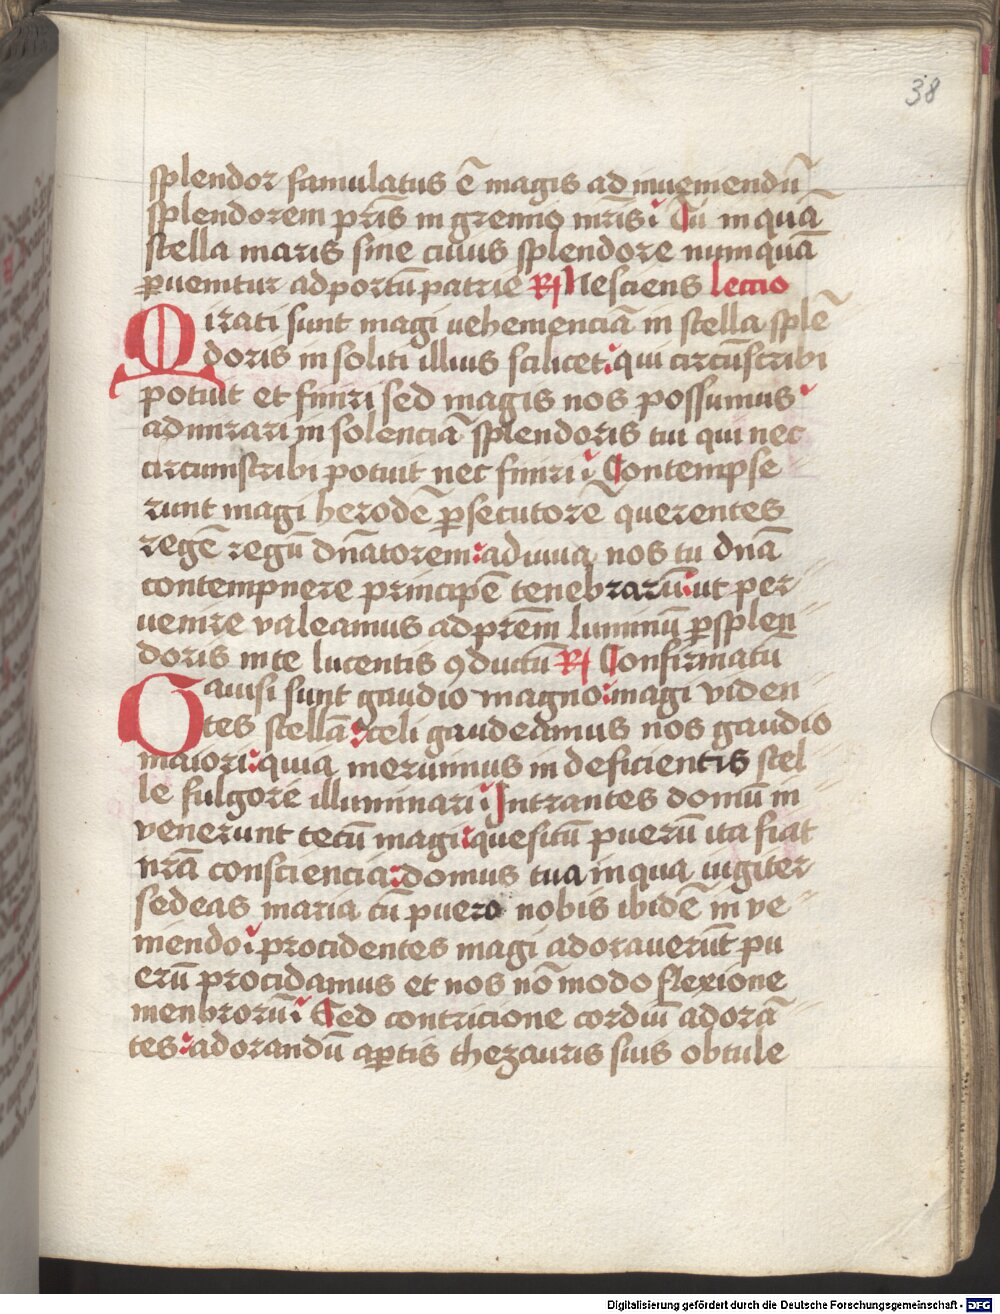 38
splendor famulatus ē magis ad inueniendū
splendorem pr̄is in gremio mr̄is Tu inquā
stella maris sine cuius splendore numquā
ꝑuenitur ad portū patrie R Nesciens lectio
Mirati sunt magi uehemenciā in stella splē
doris insoliti illius scilicet qui circūscribi
potuit et finiri sed magis nos possumus
admirari insolenciā splendoris tui qui nec
circumscribi potuit nec finiri Contempse
runt magi herodē ꝑsecutorē querentes
regē regū dn̄atorem adiuua nos tu dn̄a
contempnere principē tenebrarū ut per
uenire valeamus ad pr̄em luminū ꝑ splen
doris in te lucentis ꝯductū R Confirmatū
Gauisi sunt gaudio magno magi viden
tes stellā celi gaudeamus nos gaudio
maiori quia meruimus indeficientis stel
le fulgore illuminari Intrantes domū in
venerunt tecū magi quesitū puerū ita fiat
nr̄a consciencia domus tua in qua iugiter
sedeas maria cū puero nobis ibidē inve
niendo procidentes magi adorauerūt pu
erū procidamus et nos nō modo flexione
menbrorū Sed contricione cordiū adorā
tes adorandū aꝑtis thezauris suis obtule
Digitalisierung gefördert durch die Deutsche Forschungsgemeinschaft - DFG